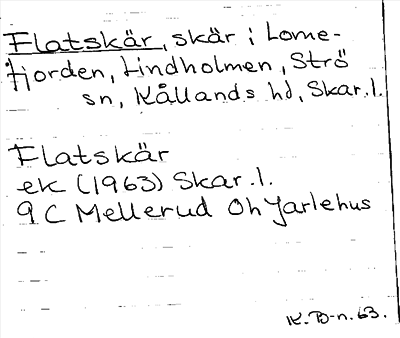 Flatskär, skär i Lome-
fjorden, Lindholmen, Strö
sn, Kållands hd, Skar.l.
Flatskär
ek (1963) Skar.l.
9C Mellerud Oh Jarlehus
K. B-n. 63.